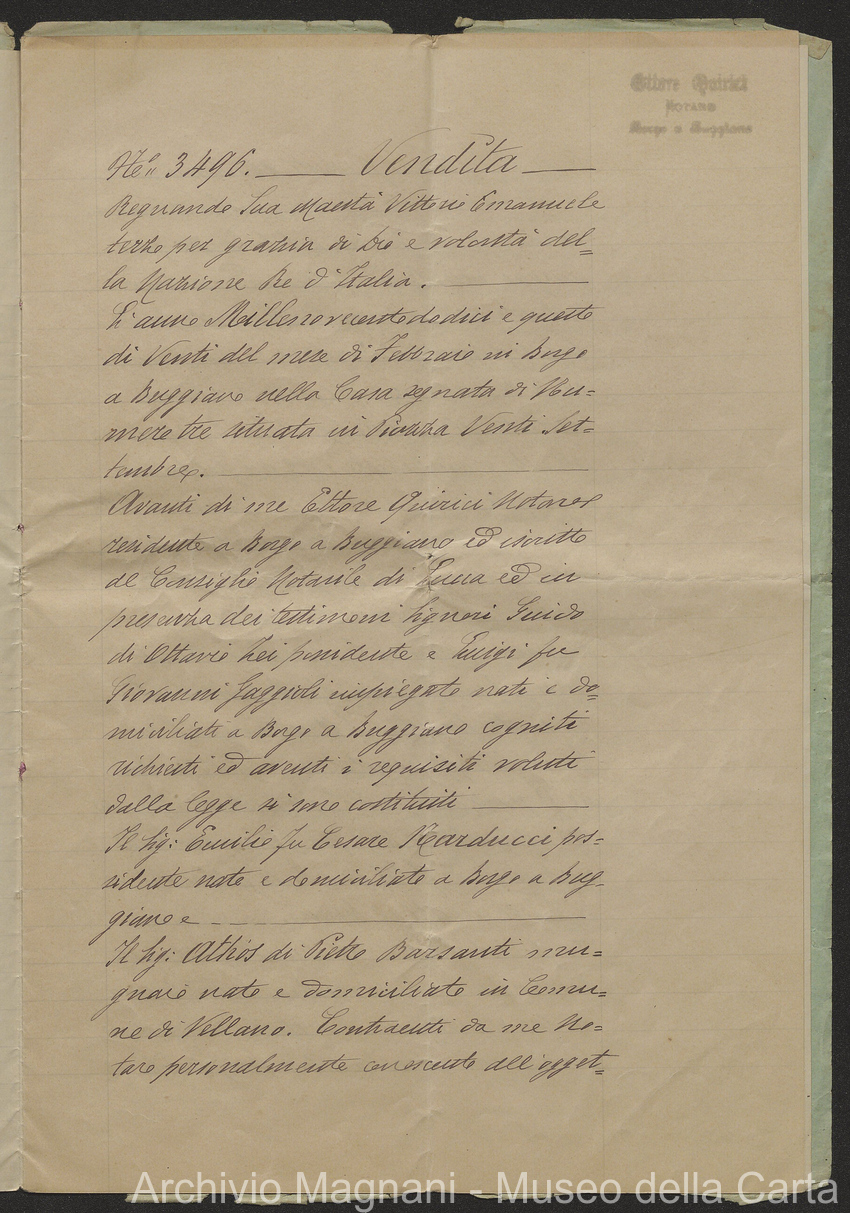 Ettore Quirici
NOTARO
Borgo a Buggiano
N.º 3496. Vendita
Regnando Sua Maestà Vittorio Emanuele
terzo per grazia di Dio e volontà del=
la Nazione Re d'Italia.
L'anno Millenovecentododici e questo
dì Venti del mese di Febbraio in Borgo
a Buggiano nella Casa segnata di Nu=
mero tre situata in Piazza Venti Set=
tembre.
Avanti di me Ettore Quirici Notaro
residente a Borgo a Buggiano ed iscritto
al Consiglio Notarile di Lucca ed in
presenza dei testimoni Signori Guido
di Ottavio Lei possidente e Luigi fu
Giovanni Gaggioli impiegato nati e do=
miciliati a Borgo a Buggiano cogniti
richiesti ed aventi i requisiti voluti
dalla legge si sono costituiti
Il Sig: Emilio fu Cesare Narducci pos=
sidente nato e domiciliato a Borgo a Bug-
giano e
Il Sig: Athos di Pietro Barsanti mu=
gnaio nato e domiciliato in Comu=
ne di Vellano. Contraenti da me No=
taro personalmente conosciuti all'ogget=
Archivio Magnani - Museo della Carta